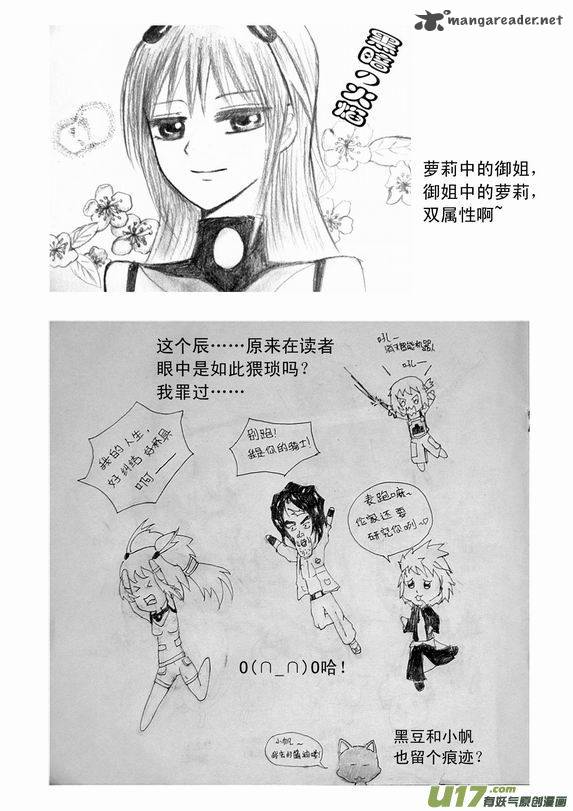 mangareader.net
萝莉中的御姐，
御姐中的萝莉，
双属性啊~
这个辰……原来在读者
眼中是如此猥琐吗？
我罪过……
吼~
我的人生，
好纠结 好杯具
啊——
别跑！
我是你的骑士！
表跑嘛~
伦家还要
研究你咧~
O(∩_∩)O哈！
小帆~
黑豆和小帆
也留个痕迹？
U17.com
有妖气原创漫画